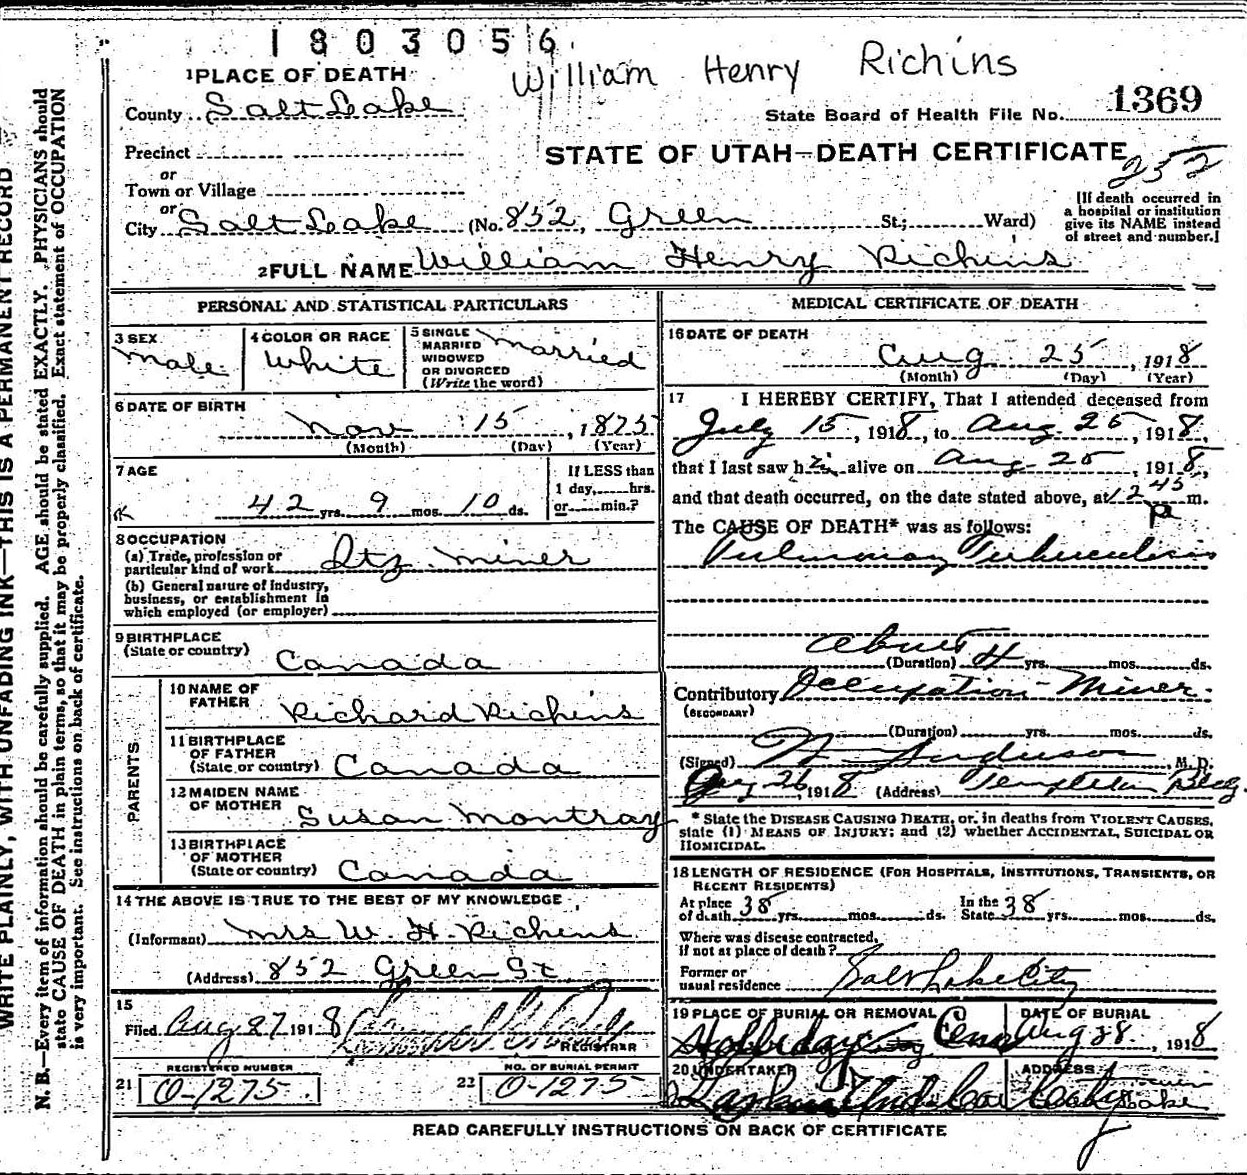 1803056
William Henry Richins
1 PLACE OF DEATH
County Salt Lake
State Board of Health File No. 1369
Precinct
or
Town or Village
or
STATE OF UTAH—DEATH CERTIFICATE
252
City Salt Lake (No. 852, Green St.; Ward)
[If death occurred in
a hospital or institution
give its NAME instead
of street and number.]
2 FULL NAME William Henry Richins
PERSONAL AND STATISTICAL PARTICULARS
3 SEX
Male
4 COLOR OR RACE
White
5 SINGLE
MARRIED
WIDOWED
OR DIVORCED
(Write the word)
Married
6 DATE OF BIRTH
Nov 15, 1875
(Month) (Day) (Year)
7 AGE
42 yrs. 9 mos. 10 ds.
If LESS than
1 day, hrs.
or min.?
8 OCCUPATION
(a) Trade, profession or
particular kind of work Qtz. Miner
(b) General nature of industry,
business, or establishment in
which employed (or employer)
9 BIRTHPLACE
(State or country) Canada
PARENTS
10 NAME OF
FATHER Richard Richins
11 BIRTHPLACE
OF FATHER
(State or country) Canada
12 MAIDEN NAME
OF MOTHER Susan Montray
13 BIRTHPLACE
OF MOTHER
(State or country) Canada
14 THE ABOVE IS TRUE TO THE BEST OF MY KNOWLEDGE
(Informant) Mrs W. H. Richins
(Address) 852 Green St
15
Filed Aug 27 1918
REGISTRAR
REGISTERED NUMBER
21 O-1275
NO. OF BURIAL PERMIT
22 O-1275
MEDICAL CERTIFICATE OF DEATH
16 DATE OF DEATH
Aug 25, 1918
(Month) (Day) (Year)
17 I HEREBY CERTIFY, That I attended deceased from
July 15, 1918, to Aug. 25, 1918,
that I last saw him alive on Aug. 25, 1918,
and that death occurred, on the date stated above, at 12 45 m.
P
The CAUSE OF DEATH* was as follows:
Pulmonary Tuberculosis
About
(Duration) 4 yrs. mos. ds.
Contributory Occupation-Miner.
(SECONDARY)
(Duration) yrs. mos. ds.
(Signed) M.D.
Aug 26, 1918 (Address) Templeton Bldg.
* State the DISEASE CAUSING DEATH, or, in deaths from VIOLENT CAUSES,
state (1) MEANS OF INJURY; and (2) whether ACCIDENTAL, SUICIDAL OR
HOMICIDAL.
18 LENGTH OF RESIDENCE (FOR HOSPITALS, INSTITUTIONS, TRANSIENTS, OR
RECENT RESIDENTS)
At place
of death 38 yrs. mos. ds.
In the
State 38 yrs. mos. ds.
Where was disease contracted,
if not at place of death?
Former or
usual residence Salt Lake City
19 PLACE OF BURIAL OR REMOVAL
DATE OF BURIAL
Aug 28, 1918
20 UNDERTAKER
ADDRESS
READ CAREFULLY INSTRUCTIONS ON BACK OF CERTIFICATE
WRITE PLAINLY, WITH UNFADING INK—THIS IS A PERMANENT RECORD
N. B.—Every item of information should be carefully supplied. AGE should be stated EXACTLY. PHYSICIANS should
state CAUSE OF DEATH in plain terms, so that it may be properly classified. Exact statement of OCCUPATION
is very important. See instructions on back of certificate.